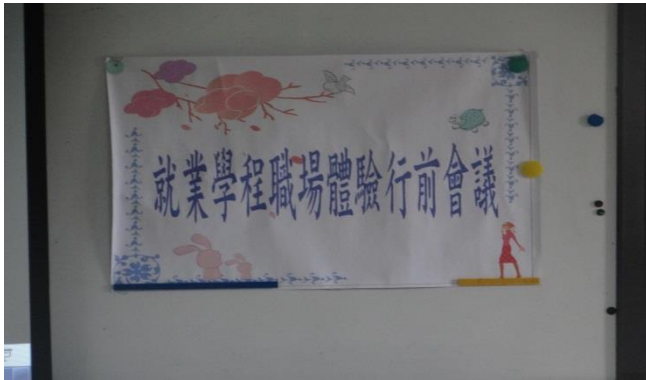 就業學程職場體驗行前會議